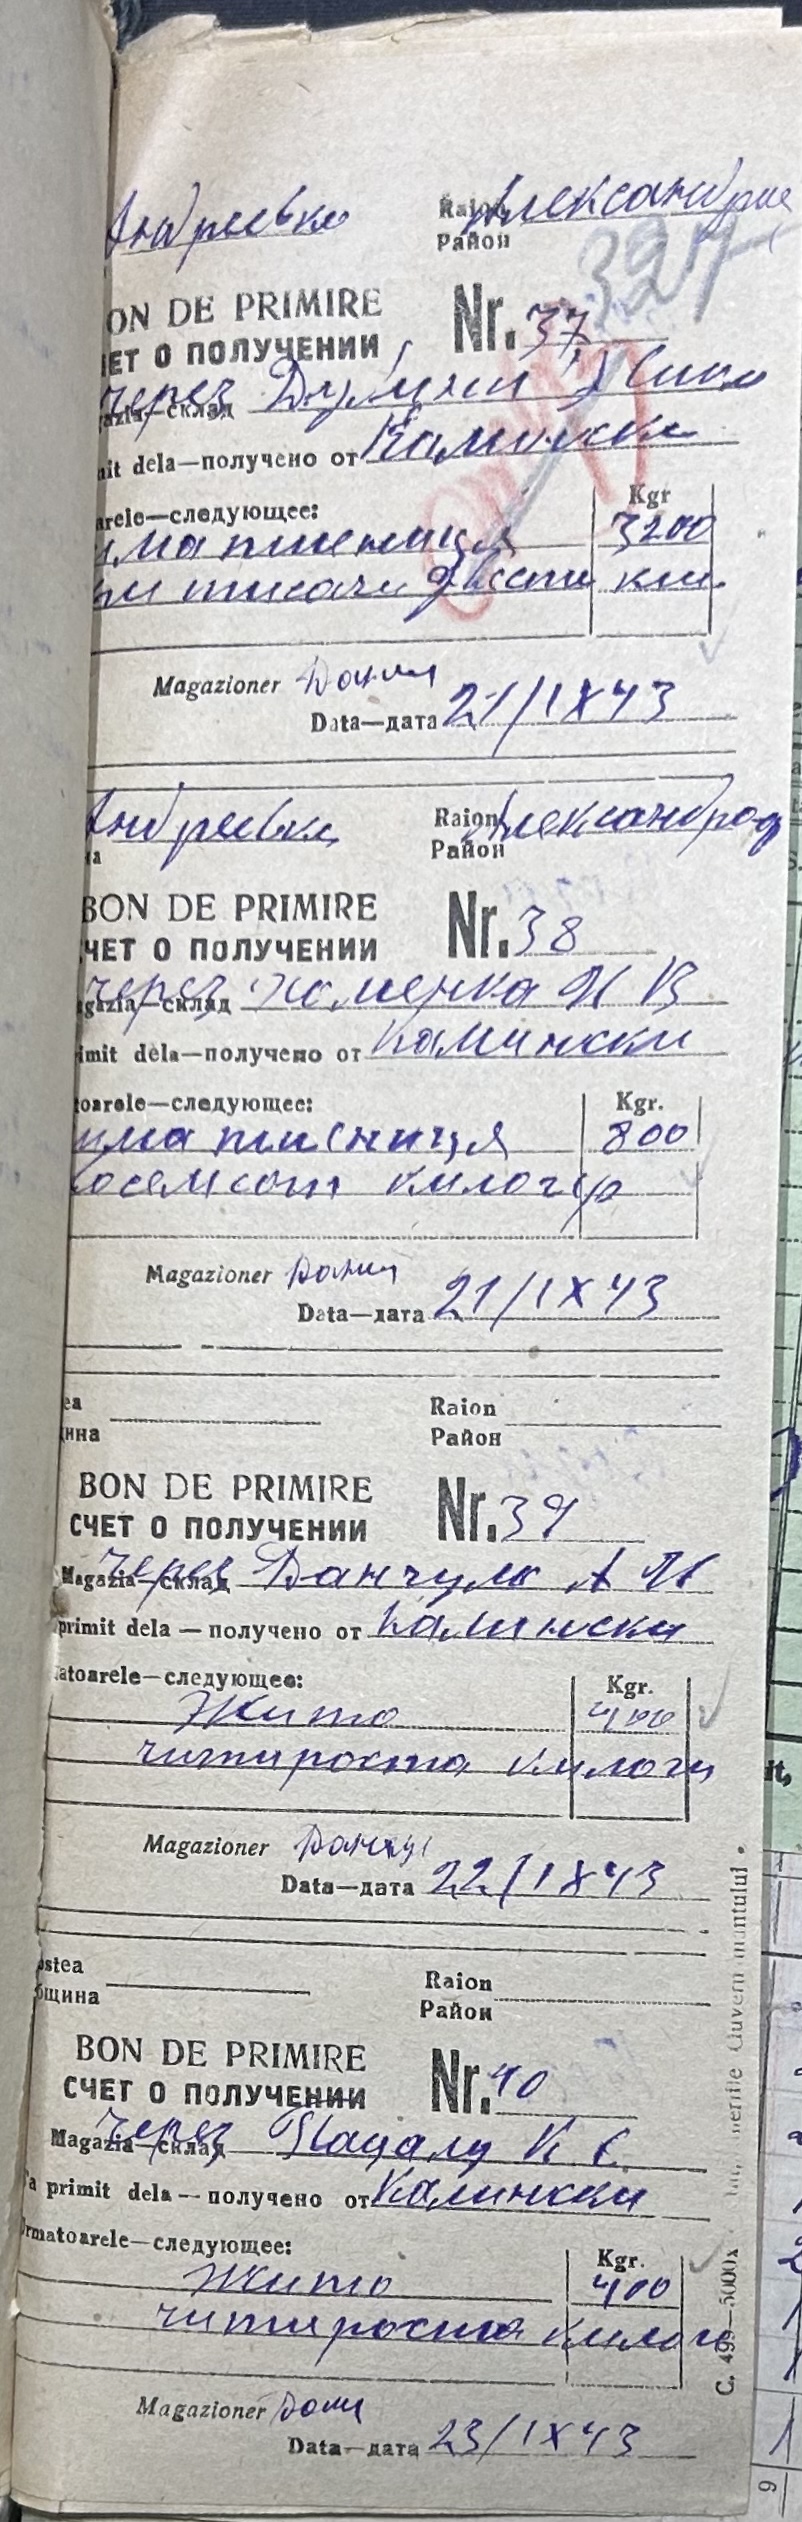 Андреевка Raion Александров
Район
327
ON DE PRIMIRE Nr. 37
ЕТ О ПОЛУЧЕНИИ
через
gazia—склад
mit dela—получено от Камински
arele—следующее: Kgr
има пшеница 3200
ри тисячи двести кил.
Magazioner
Data—дата 21/IX 43
Андреевка Raion Александров
на Район
BON DE PRIMIRE Nr. 38
ЧЕТ О ПОЛУЧЕНИИ
через Хоменка И В
gazia—склад
imit dela—получено от Камински
toarele—следующее: Kgr.
има пшениця 800
восемсот килогр
Magazioner
Data—дата 21/IX 43
ea Raion
щина Район
BON DE PRIMIRE Nr. 39
СЧЕТ О ПОЛУЧЕНИИ
через Данчук А
Magazia—склад
primit dela—получено от Камински
atoarele—следующее: Kgr.
Жито 400
читироста килогр
Magazioner Данчук
Data—дата 22/IX 43
ostea Raion
бщина Район
BON DE PRIMIRE Nr. 40
СЧЕТ О ПОЛУЧЕНИИ
через К С
Magazia—склад
a primit dela—получено от Камински
rmatoarele—следующее: Kgr.
Жито 400
читироста килого
Magazioner
Data—дата 23/IX 43
C. 499—5000x
9